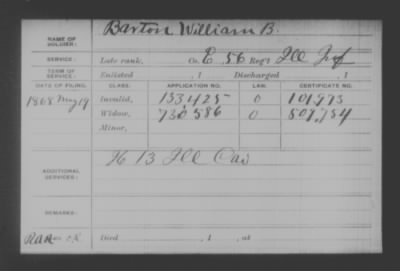 NAME OF SOLDIER: Barton William B.
SERVICE: Late rank, Co. E. 56 Reg't Ill Inf
TERM OF SERVICE: Enlisted , 1 Discharged , 1
DATE OF FILING. CLASS. APPLICATION NO. LAW. CERTIFICATE NO.
1868 May 19 Invalid, 133,425 0 101,773
Widow, 730,586 0 509,754
Minor,
ADDITIONAL SERVICES: H 13 Ill Cav
REMARKS:
Died , 1 , at